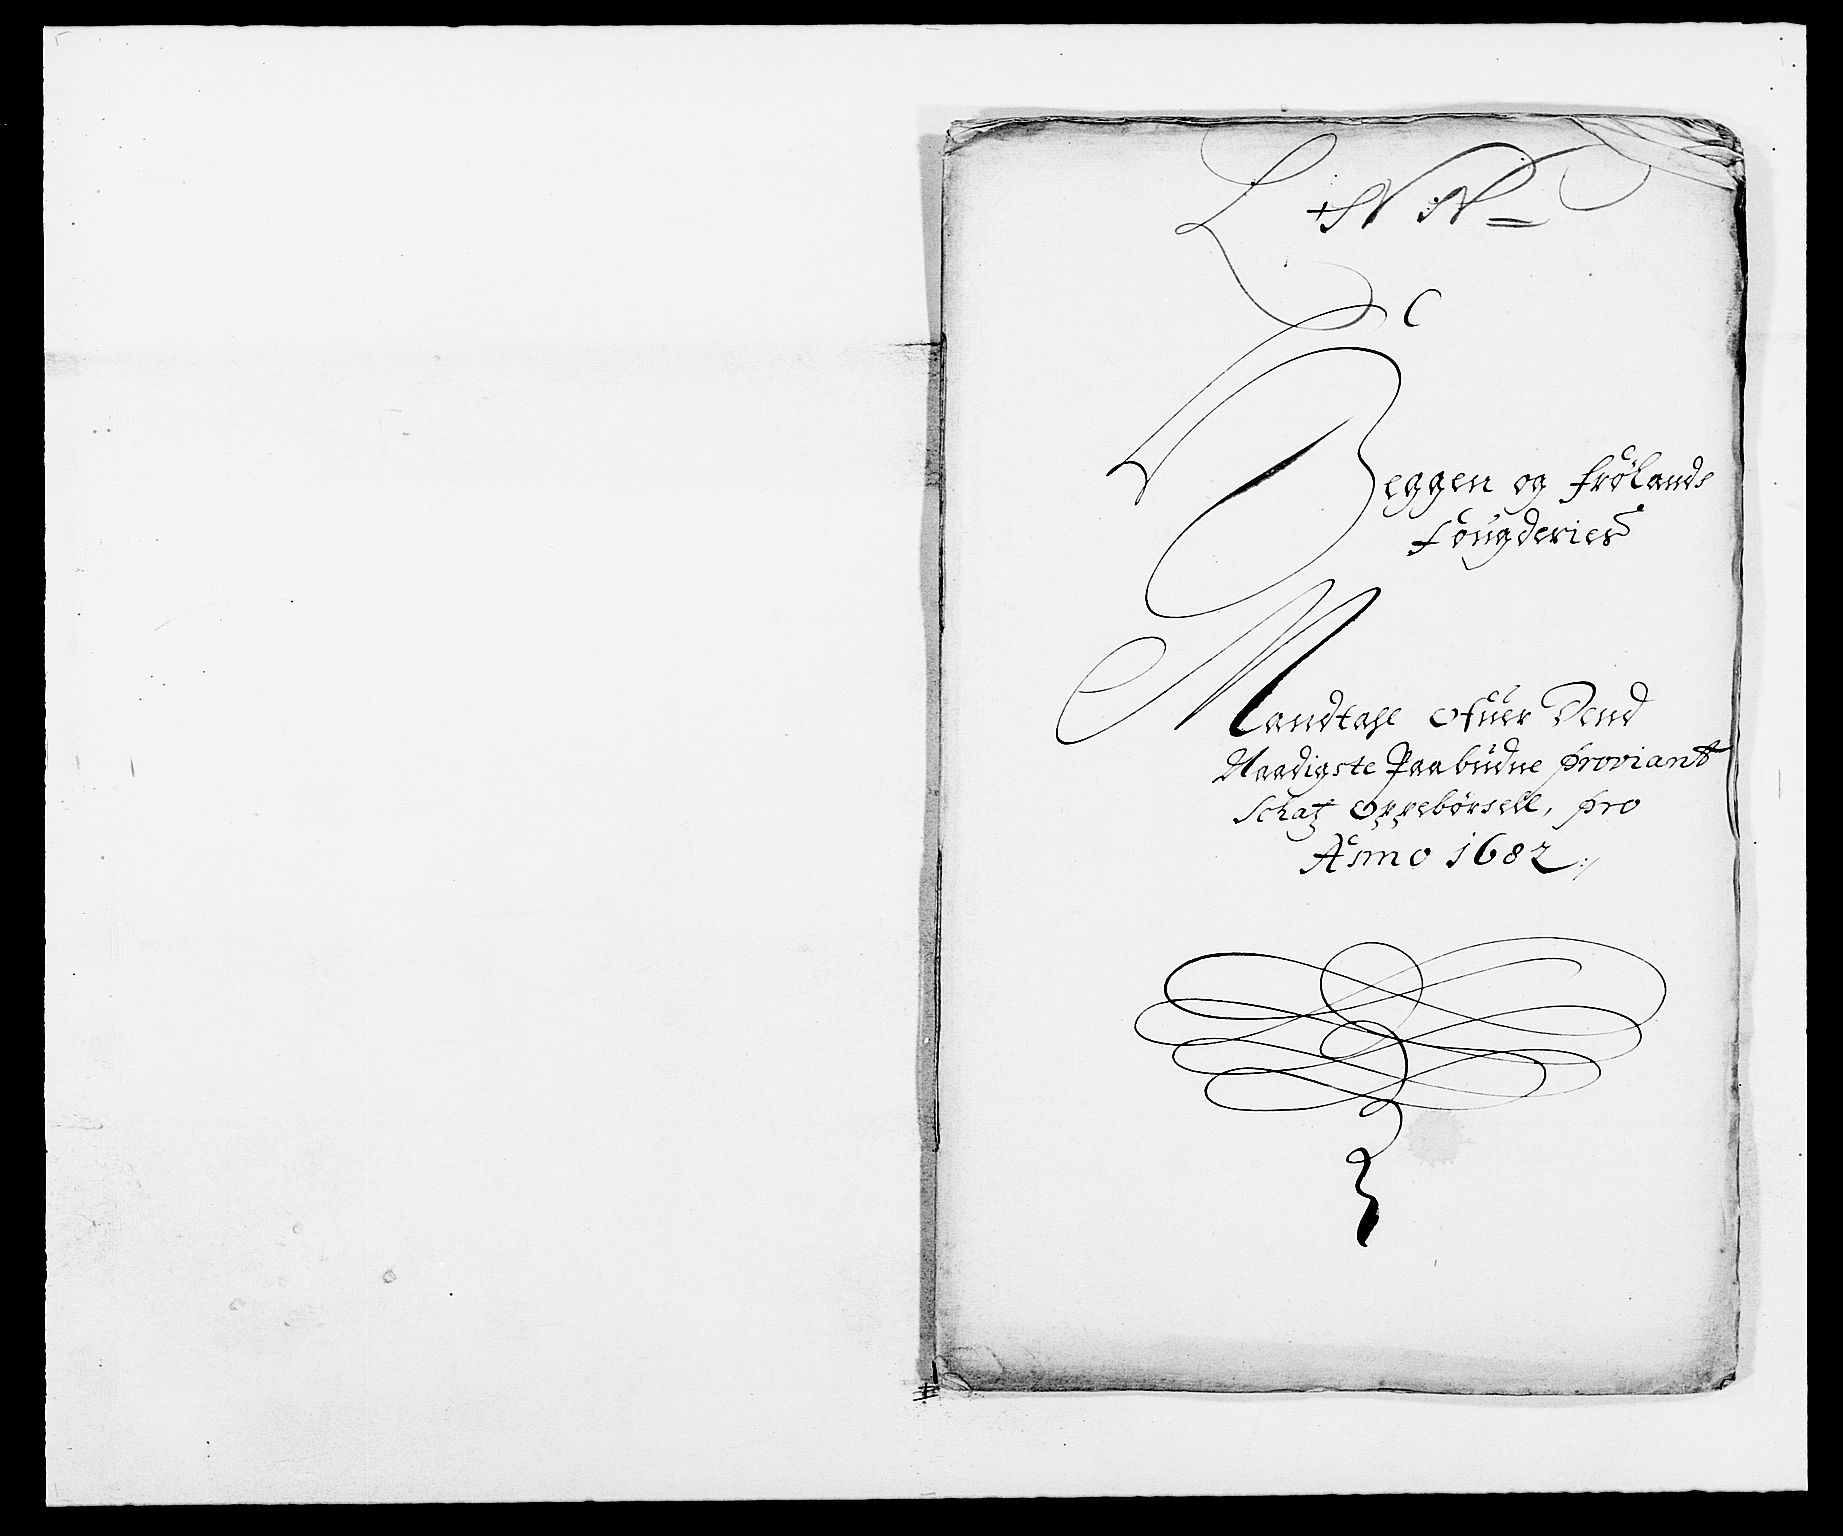 C
Heggen og Frølands
fougderies
Mandtahl Ofuer Dend
Naadigste Paabudne proviant
Schatz Oppebørsell, pro
Anno 1682